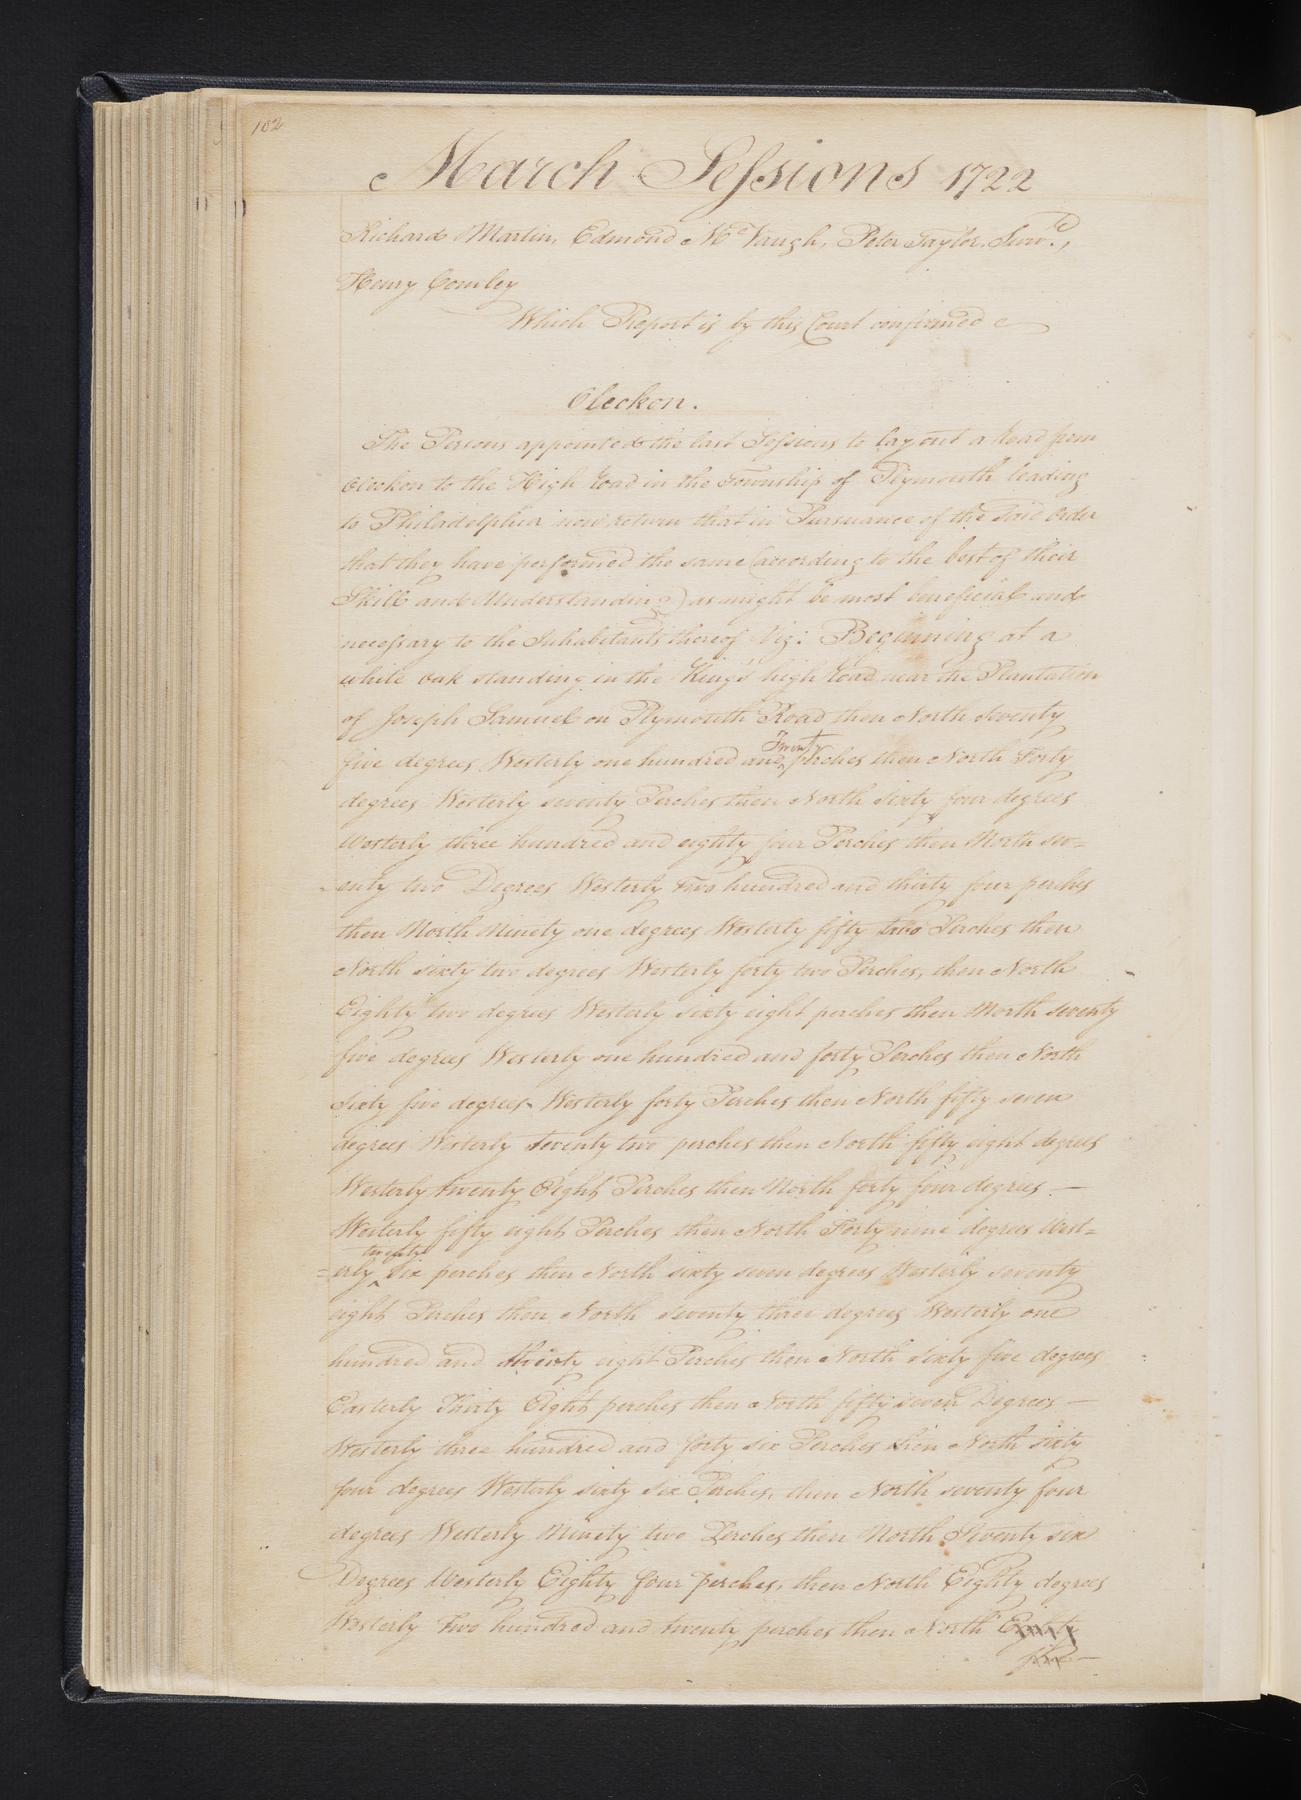 102
March Sessions 1722
Richard Martin, Edmond Mc Vaugh, Peter Taylor, Survd.,
Henry Comley
Which Report is by this Court confirmed
Oleckon.
The Persons appointed the last Sessions to lay out a Road from
Oleckon to the High Road in the Township of Plymouth leading
to Philadelphia now return that in Pursuance of the said Order
that they have performed the same (according to the best of their
Skill and Understanding) as might be most beneficial and
necessary to the Inhabitants thereof Viz: Beginning at a
white oak standing in the King's high Road near the Plantation
of Joseph Samuel on Plymouth Road then North seventy
five degrees Westerly one hundred and Twenty perches then North Forty
degrees Westerly seventy Perches then North sixty four degrees
Westerly three hundred and eighty four Perches then North sev=
-enty two Degrees Westerly Two hundred and thirty four perches
then North Ninety one degrees Westerly fifty two Perches then
North sixty two degrees Westerly forty two Perches, then North
Eighty two degrees Westerly sixty eight perches then North seventy
five degrees Westerly one hundred and forty Perches then North
Sixty five degrees Westerly forty Perches then North fifty seven
degrees Westerly seventy two perches then North fifty eight degrees
Westerly twenty Eight Perches then North forty four degrees —
Westerly fifty eight Perches then North Forty nine degrees West=
=erly twenty six perches then North sixty seven degrees Westerly seventy
eight Perches then North seventy three degrees Westerly one
hundred and thirty eight Perches then North sixty five degrees
Easterly Thirty Eight perches then North fifty seven Degrees —
Westerly three hundred and forty six Perches then North sixty
four degrees Westerly sixty six Perches, then North seventy four
degrees Westerly Ninety two Perches then North Seventy six
Degrees Westerly Eighty four perches, then North Eighty degrees
Westerly Two hundred and twenty perches then North Eighty
five —